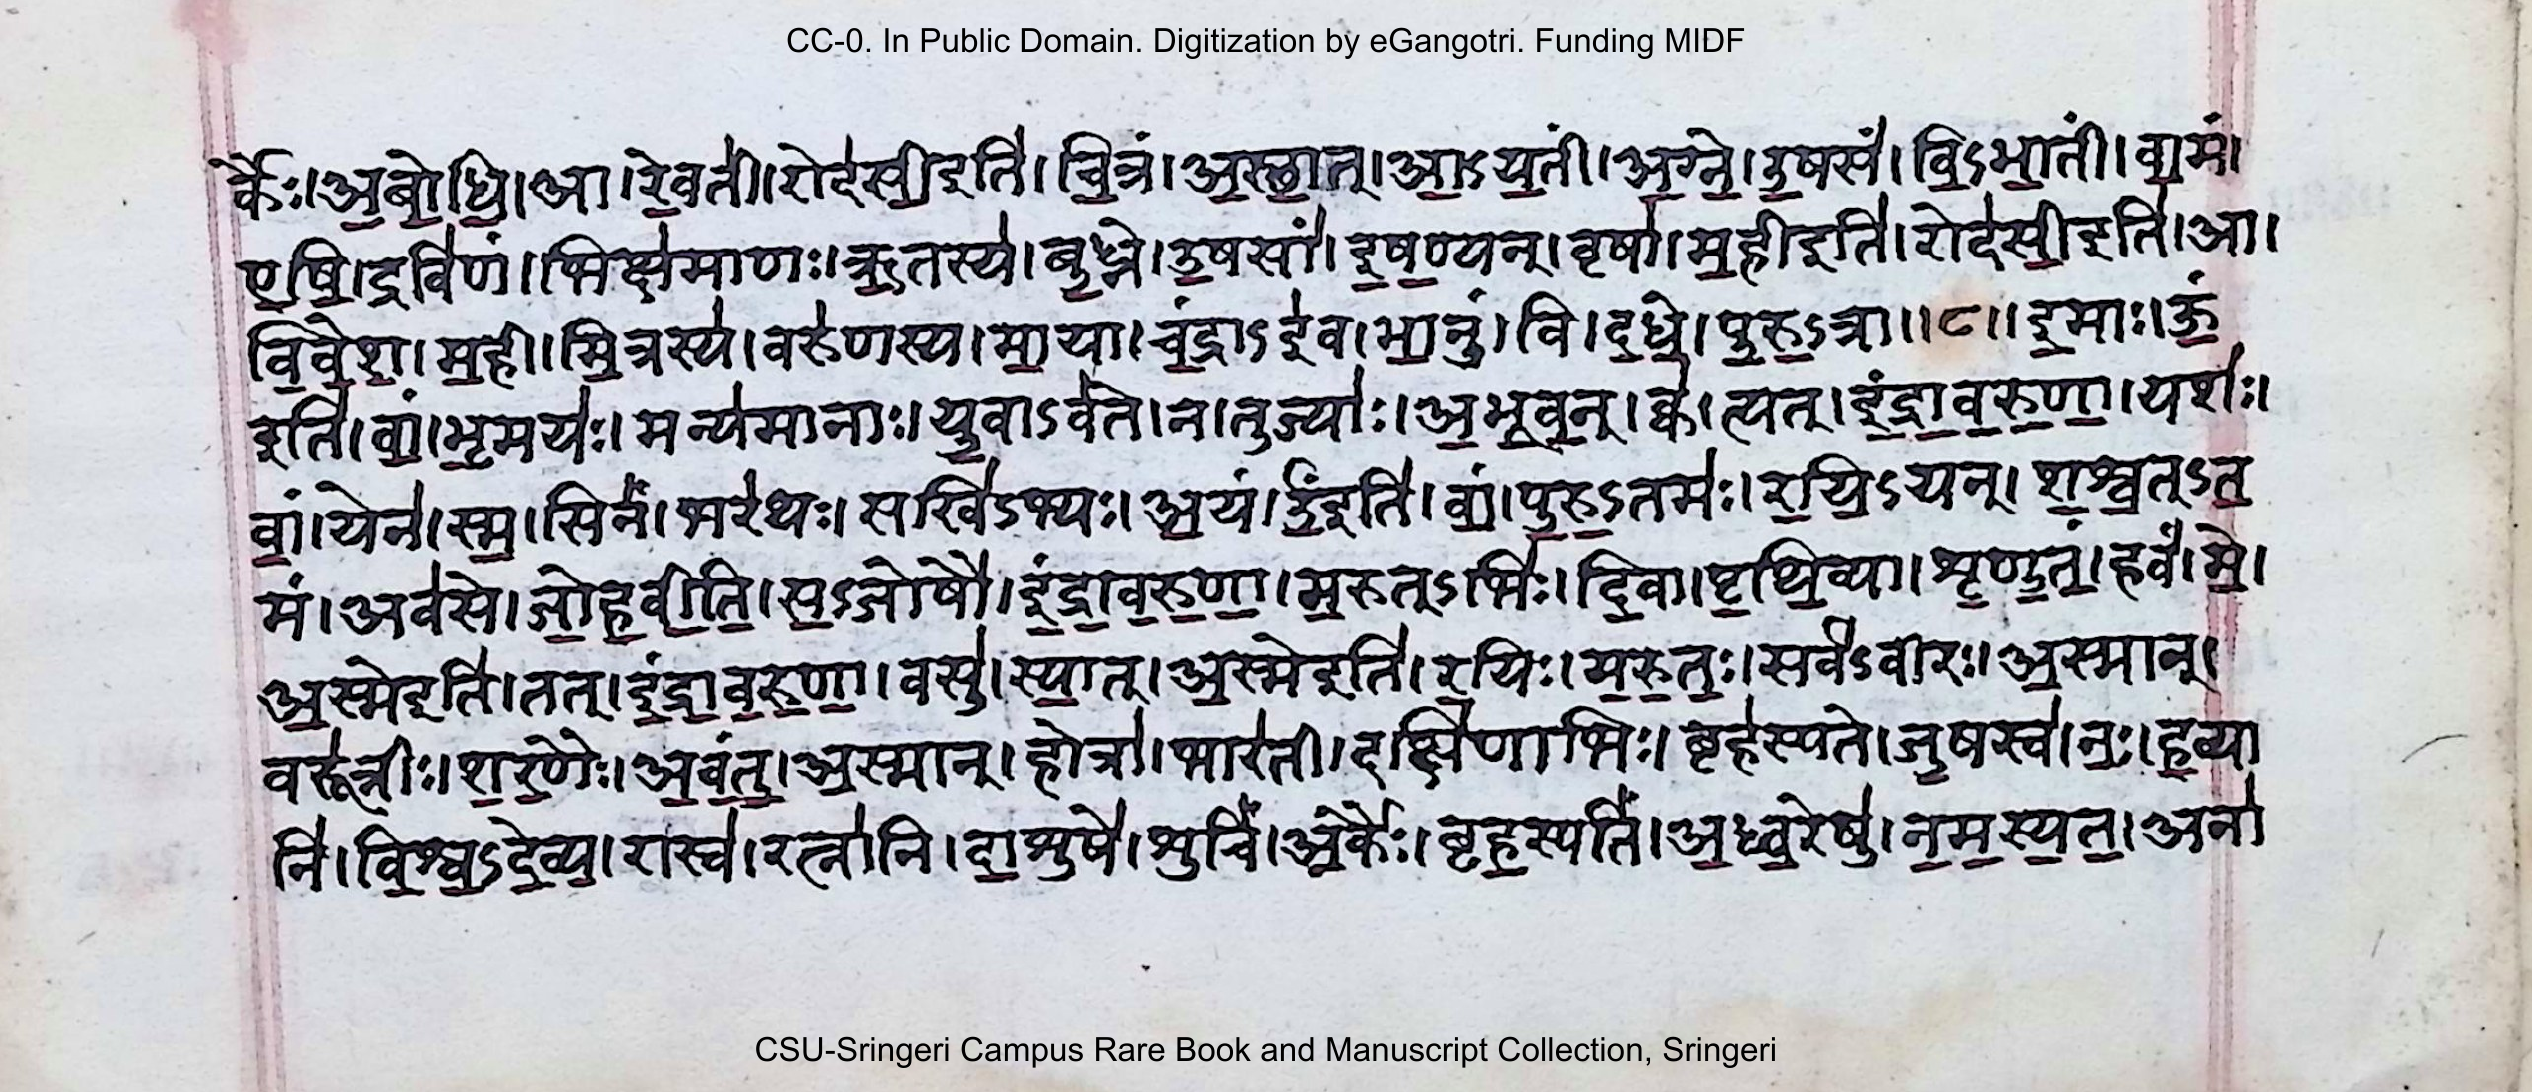 CC-0. In Public Domain. Digitization by eGangotri. Funding MIDF
र्कैः। अ॒बो॒धि॒। आ। रे॒वती॑। रोद॑सी॒इति॑। चि॒त्रं। अ॒स्था॒त्। आ॒ऽय॒तीं। अ॒ग्ने॒। उ॒षसं॑। वि॒ऽभा॒तीं। वा॒मं।
ए॒षि॒। द्रवि॑णं। भिक्ष॑माणः। ऋ॒तस्य॑। बु॒ध्ने। उ॒षसां॑। इ॒ष॒ण्यन्। वृषा॑। म॒हीइति॑। रोद॑सी॒इति॑। आ।
वि॒वे॒श॒। म॒ही। मि॒त्रस्य॑। वरु॑णस्य। मा॒या। चं॒द्राऽइ॑व। भा॒नुं। वि। द॒धे॒। पु॒रु॒ऽत्रा॥ ८॥ इ॒माः। ऊं॒
इति॑। वां॒। भृ॒मयः॑। मन्य॑मानाः। यु॒वाऽव॑ते। न। तुज्याः॑। अ॒भू॒व॒न्। क्व॑। त्यत्। इं॒द्रा॒व॒रु॒णा॒। यशः॑।
वां॒। येन॑। स्म॒। सिनं॑। भर॑थः। सखि॑ऽभ्यः। अ॒यं। उं॒इति॑। वां॒। पु॒रु॒ऽतमः॑। र॒यि॒ऽयन्। श॒श्व॒त्ऽत॒
मं। अव॑से। जो॒ह॒वी॒ति॒। स॒ऽजोषौ॑। इं॒द्रा॒व॒रु॒णा॒। म॒रुत्ऽभिः॑। दि॒वा। पृ॒थि॒व्या। शृ॒णु॒तं॒। हवं॑। मे॒।
अ॒स्मेइति॑। तत्। इं॒द्रा॒व॒रु॒णा॒। वसु॑। स्या॒त्। अ॒स्मेइति॑। र॒यिः। म॒रु॒तः॒। सर्व॑ऽवीरः। अ॒स्मान्।
वरू॑त्रीः। श॒र॒णैः। अ॒वं॒तु॒। अ॒स्मान्। होत्रा॑। भार॑ती। दक्षि॑णाभिः। बृह॑स्पते। जु॒षस्व॑। नः॒। ह॒व्या
नि॑। वि॒श्व॒ऽदे॒व्य॒। रास्व॑। रत्ना॑नि। दा॒शुषे॑। शुचिं॑। अ॒र्कैः। बृह॒स्पतिं॑। अ॒ध्व॒रेषु॑। न॒म॒स्य॒त॒। अना॑
CSU-Sringeri Campus Rare Book and Manuscript Collection, Sringeri